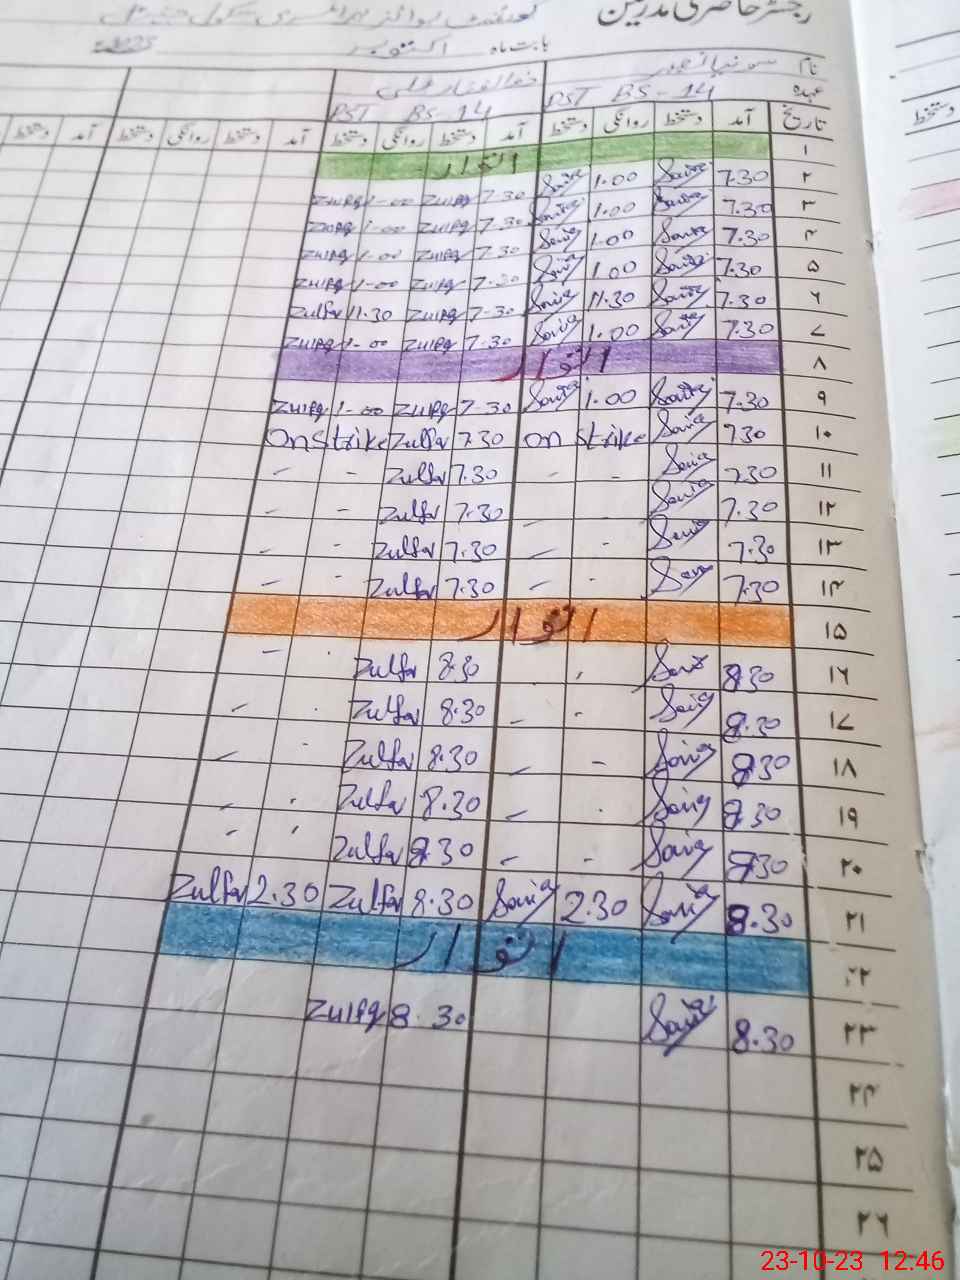 رجسٹر حاضری مدرسین
گورنمنٹ بوائز پرائمری سکول
بابت ماہ اکتوبر 2023ء
نام ذوالفقار علی
عہدہ PST BS-14 PST BS-14
تاریخ آمد دستخط روانگی دستخط آمد دستخط روانگی دستخط آمد دستخط روانگی دستخط آمد دستخط
۱ اتوار
۲ 7.30 Sonia 1.00 Sonia 7-30 Zulfq 1-00 Zulfq
۳ 7.30 Sonia 1.00 Sonia 7.30 Zulfq 1-00 Zulfq
۴ 7.30 Sonia 1.00 Sonia 7.30 Zulfq 1-00 Zulfq
۵ 7.30 Sonia 1.00 Sonia 7.30 Zulfq 1-00 Zulfq
۶ 7.30 Sonia 11.30 Sonia 7-30 Zulfq 11.30 Zulfar
۷ 7.30 Sonia 1.00 Sonia 7.30 Zulfq 1-00 Zulfq
۸ اتوار
۹ 7.30 Sonia 1.00 Sonia 7-30 Zulfq 1-00 Zulfq
۱۰ 7.30 Sonia on strike 7.30 Zulfar On Strike
۱۱ 7.30 Sonia - - 7.30 Zulfar - -
۱۲ 7.30 Sonia - - 7.30 Zulfar - -
۱۳ 7.30 Sonia - - 7.30 Zulfar - -
۱۴ 7.30 Sonia - - 7.30 Zulfar - -
۱۵ اتوار
۱۶ 8.30 Sonia - - 8.30 Zulfar - -
۱۷ 8.30 Sonia - - 8.30 Zulfar - -
۱۸ 8.30 Sonia - - 8.30 Zulfar - -
۱۹ 8.30 Sonia - - 8.30 Zulfar - -
۲۰ 8.30 Sonia - - 8.30 Zulfar - -
۲۱ 8.30 Sonia 2.30 Sonia 8.30 Zulfar 2.30 Zulfar
۲۲ اتوار
۲۳ 8.30 Sonia 8.30 Zulfq
۲۴
۲۵
۲۶
دستخط
23-10-23 12:46